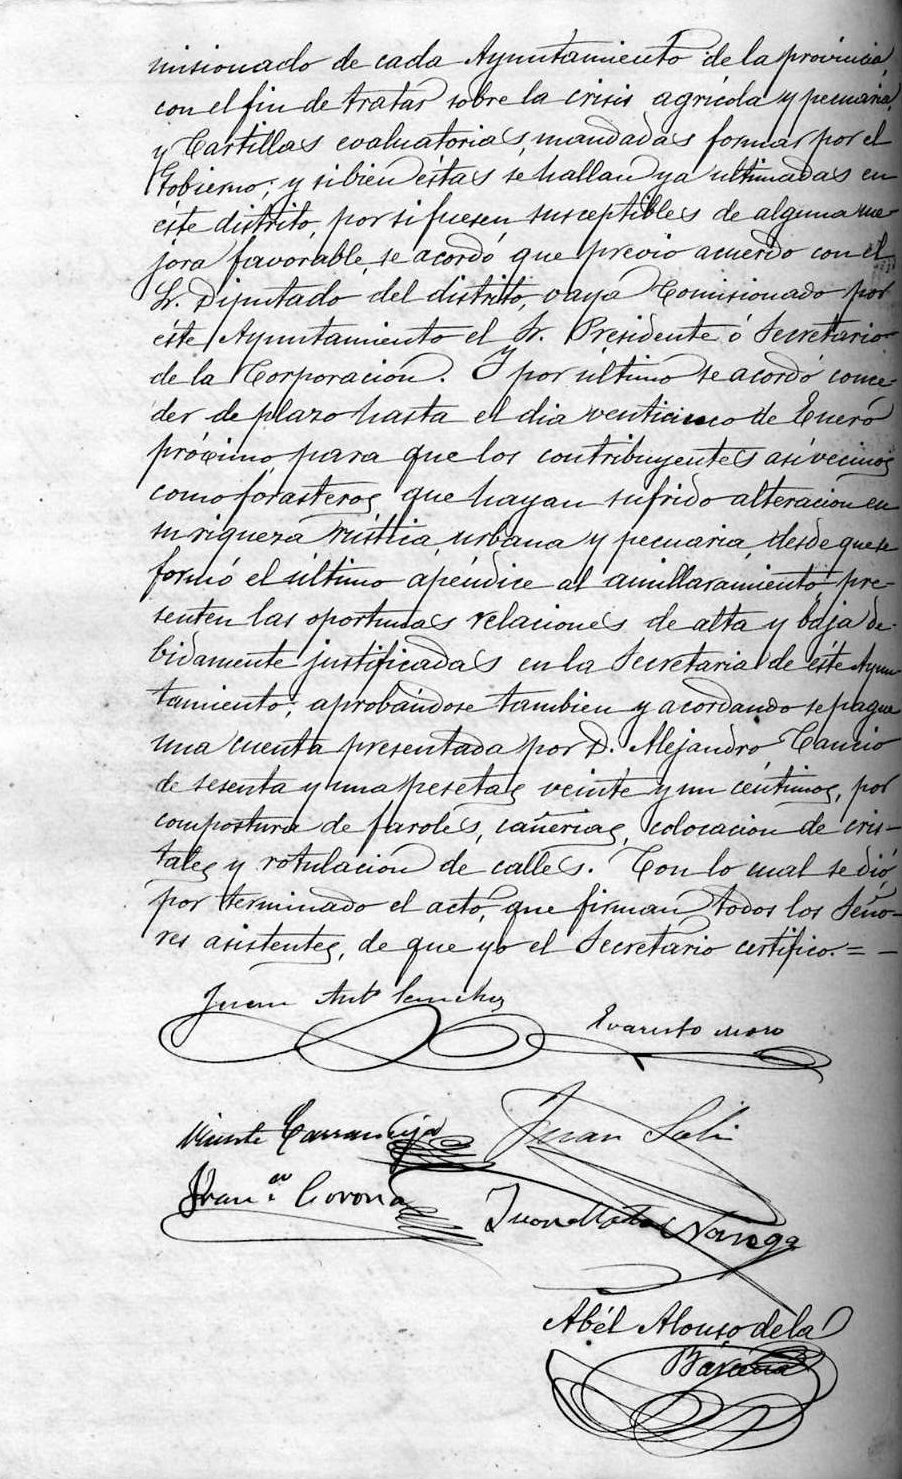 misionado de cada Ayuntamiento de la provincia,
con el fin de tratar sobre la crisis agrícola y pecuaria,
y Cartillas evaluatorias, mandadas formar por el
Gobierno; y si bien éstas se hallan ya ultimadas en
éste distrito, por si fuesen susceptibles de alguna me-
jora favorable, se acordó que previo acuerdo con el
Sr. Diputado del distrito, vaya Comisionado por
éste Ayuntamiento el Sr. Presidente ó Secretario
de la Corporación. Y por último se acordó conce-
der de plazo hasta el dia venticinco de Enero
próximo para que los contribuyentes asi vecinos
como forasteros, que hayan sufrido alteracion en
su riqueza rústica, urbana y pecuaria, desde que se
formó el último apéndice al amillaramiento, pre-
senten las oportunas relaciones de alta y baja de-
bidamente justificadas en la Secretaria de éste Ayun-
tamiento; aprobándose tambien y acordando se pague
una cuenta presentada por D. Alejandro Cancio
de sesenta y una pesetas, veinte y un céntimos, por
compostura de faroles, cañerias, colocacion de cris-
tales y rotulacion de calles. Con lo cual se dió
por terminado el acto, que firman todos los Seño-
res asistentes, de que yo el Secretario certifico. = -
Juan Antº Sanchez
Evaristo Moro
Vicente Carranceja
Juan
Francº Corona
Juan Noriega
Abél Alonso de la
Bárcena